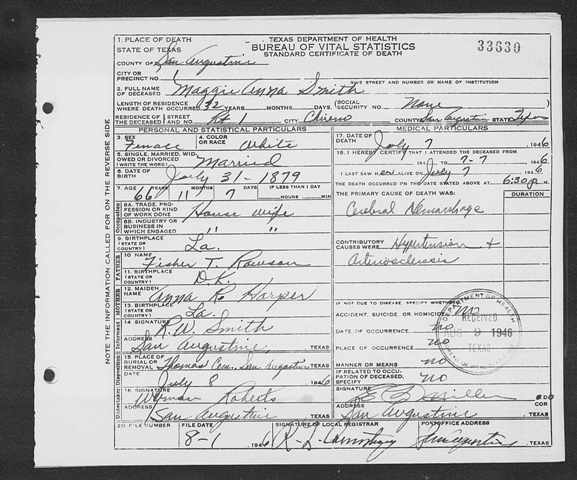 1. PLACE OF DEATH
STATE OF TEXAS
TEXAS DEPARTMENT OF HEALTH
BUREAU OF VITAL STATISTICS
STANDARD CERTIFICATE OF DEATH
33630
COUNTY OF San Augustine
CITY OR PRECINCT NO. 1
GIVE STREET AND NUMBER OR NAME OF INSTITUTION
2. FULL NAME OF DECEASED Maggie Anna Smith
LENGTH OF RESIDENCE WHERE DEATH OCCURRED 32 YEARS MONTHS DAYS SOCIAL SECURITY NO. None
RESIDENCE OF THE DECEASED STREET AND NO. Rt 1 CITY Chireno COUNTY San Augustine STATE Texas
PERSONAL AND STATISTICAL PARTICULARS
3. SEX Female White
5. SINGLE, MARRIED, WIDOWED OR DIVORCED (WRITE THE WORD) Married
6. DATE OF BIRTH July 31-1879
7. AGE 66 YEARS 11 MONTHS 7 DAYS IF LESS THAN 1 DAY HOURS MIN
8A. TRADE, PROFESSION OR KIND OF WORK DONE House wife
8B. INDUSTRY OR BUSINESS IN WHICH ENGAGED " "
9. BIRTHPLACE (STATE OR COUNTRY) La.
10. NAME Fisher T. Rawson
11. BIRTHPLACE (STATE OR COUNTRY) D.K.
12. MAIDEN NAME Anna R Harper
13. BIRTHPLACE (STATE OR COUNTRY) La.
14. SIGNATURE R.W. Smith
ADDRESS San Augustine, TEXAS
15. PLACE OF BURIAL OR REMOVAL Thomas Cem. San Augustine TEXAS
DATE July 8 1946
16. SIGNATURE Wyman Roberts
ADDRESS San Augustine TEXAS
MEDICAL PARTICULARS
17. DATE OF DEATH July 7 1946
18. I HEREBY CERTIFY THAT I ATTENDED THE DECEASED FROM
TO 7-7 1946
I LAST SAW HER ALIVE ON July 7 1946
THE DEATH OCCURRED ON THE DATE STATED ABOVE AT 6:30 P M.
THE PRIMARY CAUSE OF DEATH WAS: DURATION
Cerebral Hemorrhage
CONTRIBUTORY CAUSES WERE: Hypertension &
Arteriosclerosis
IF NOT DUE TO DISEASE, SPECIFY WHETHER:
ACCIDENT, SUICIDE, OR HOMICIDE no
DATE OF OCCURRENCE no
PLACE OF OCCURRENCE no
MANNER OR MEANS no
IF RELATED TO OCCUPATION OF DECEASED, SPECIFY no
DEPARTMENT OF HEALTH
RECEIVED
AUG 9 1946
TEXAS
SIGNATURE Miller
ADDRESS San Augustine TEXAS
20. FILE NUMBER FILE DATE SIGNATURE OF LOCAL REGISTRAR POSTOFFICE ADDRESS
8-1 1946 San Augustine TEXAS
NOTE THE INFORMATION CALLED FOR ON THE REVERSE SIDE